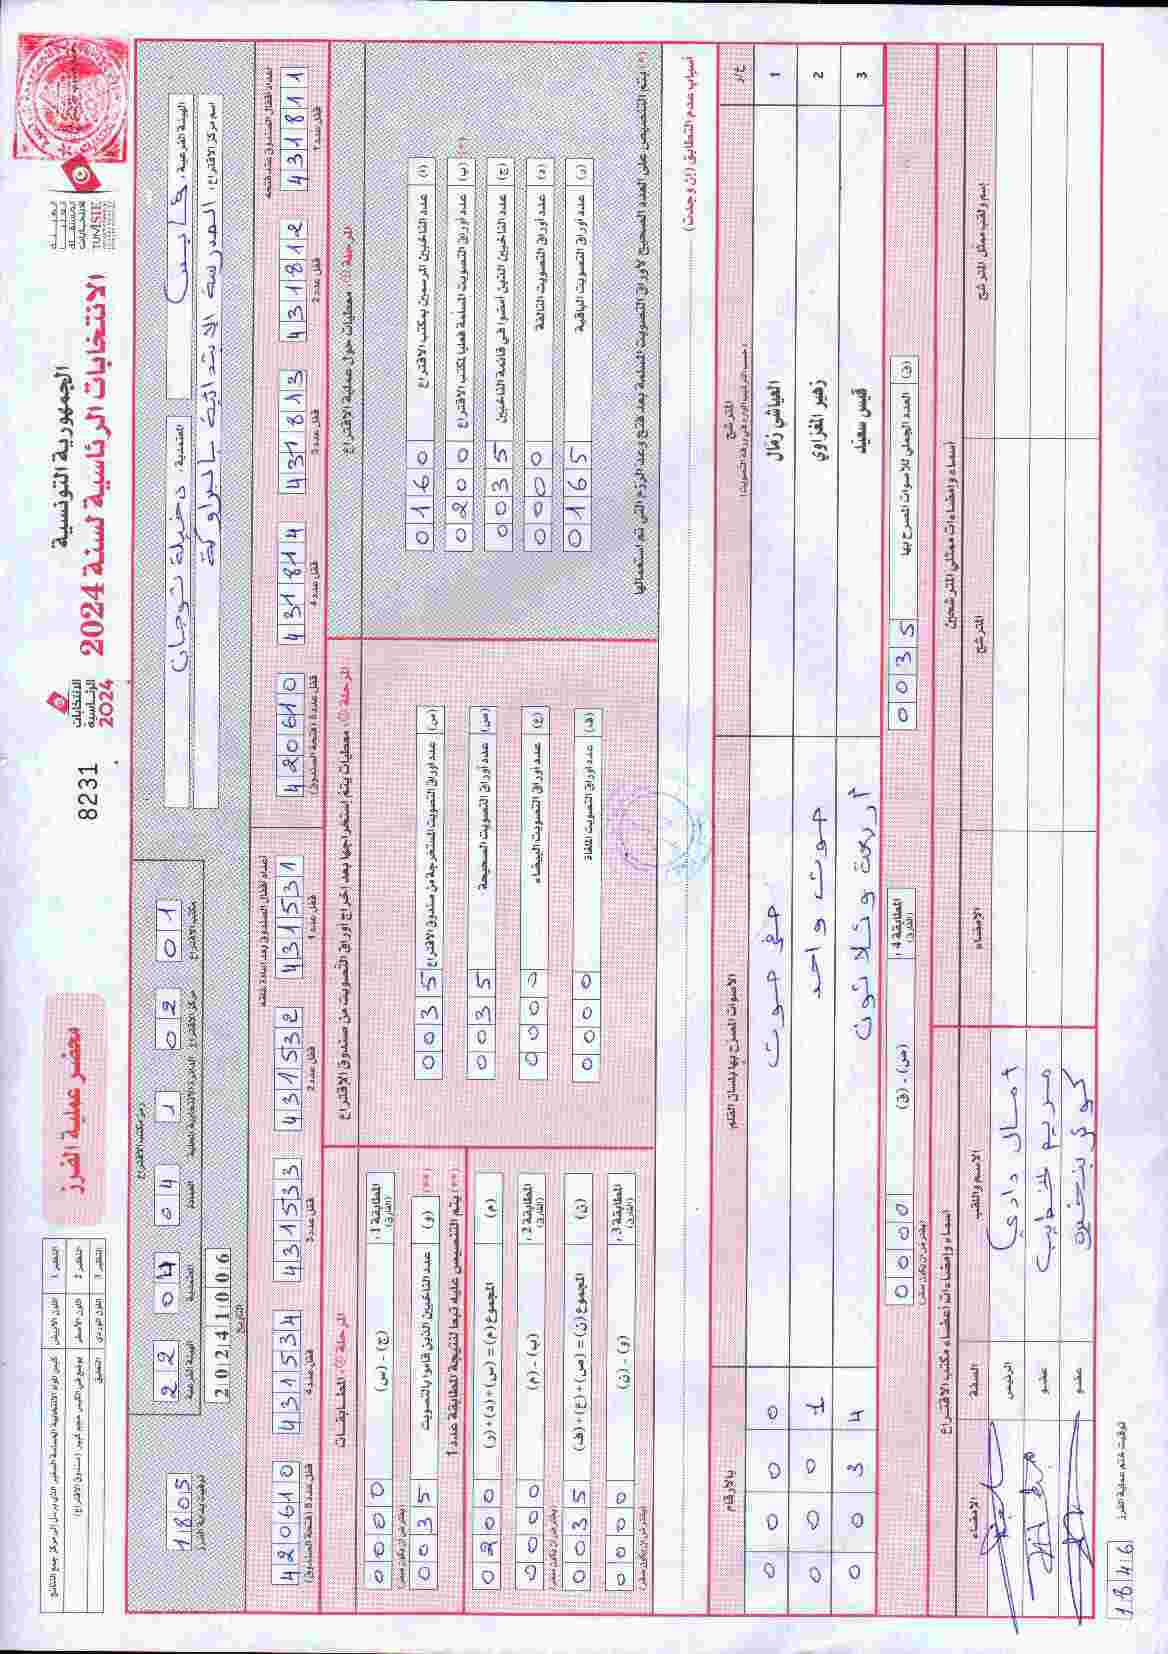 الجمهورية التونسية
الانتخابات الرئاسية لسنة 2024
الهيئة
العليا
المستقلة
للانتخابات
TUNISIE
الانتخابات
الرئاسية
2024
8231
محضر عملية الفرز
النظير 1
النظير 2
النظير 3
اللون الأبيض
اللون الأصفر
اللون الوردي
التعليق
الهيئة الفرعية: قابس
المعتمدية: دخيلة توجان
اسم مركز الاقتراع: المدرسة الابتدائية بالبراوكة
رمز مكتب الاقتراع
22 الهيئة الفرعية
04 المعتمدية
04 العمادة
1 الدائرة الانتخابية المحلية
02 مركز الاقتراع
01 مكتب الاقتراع
20241006
التاريخ
1805
توقيت بداية الفرز
أعداد أقفال الصندوق عند فتحه
431811 قفل عدد 1
431812 قفل عدد 2
431813 قفل عدد 3
431814 قفل عدد 4
420610 قفل عدد 5 (فتحة الصندوق)
أعداد أقفال الصندوق بعد إعادة غلقه
431531 قفل عدد 1
431532 قفل عدد 2
431533 قفل عدد 3
431534 قفل عدد 4
420610 قفل عدد 5 (فتحة الصندوق)
المرحلة 1: معطيات حول عملية الاقتراع
(أ) عدد الناخبين المرسمين بمكتب الاقتراع 0160
(ب) عدد أوراق التصويت المسلمة فعليا لمكتب الاقتراع (*) 0200
(ج) عدد الناخبين الذين أمضوا في قائمة الناخبين 0035
(د) عدد أوراق التصويت التالفة 0000
(ر) عدد أوراق التصويت الباقية 0165
(*) يتم التنصيص على العدد الصحيح لأوراق التصويت المسلمة بعد فتح وعد الرزم التي تم استعمالها
المرحلة 2: معطيات يتم استخراجها بعد إخراج أوراق التصويت من صندوق الاقتراع
(س) عدد أوراق التصويت المستخرجة من صندوق الاقتراع 0035
(ص) عدد أوراق التصويت الصحيحة 0035
(ع) عدد أوراق التصويت البيضاء 0000
(ف) عدد أوراق التصويت الملغاة 0000
المرحلة 3: المطابقات
المطابقة 1: (الفارق) (ج) - (س) 0000 (يفترض أن يكون صفر)
(**) (و) عدد الناخبين الذين قاموا بالتصويت 0035
(**) يتم التنصيص عليه تبعا لنتيجة المطابقة عدد 1
(م) المجموع (م) = (ر) + (د) + (و) 0200
المطابقة 2: (الفارق) (ب) - (م) 0000 (يفترض أن يكون صفر)
(ن) المجموع (ن) = (ص) + (ع) + (ف) 0035
المطابقة 3: (الفارق) (و) - (ن) 0000 (يفترض أن يكون صفر)
أسباب عدم التطابق (إن وجدت)
ع/ر
المترشح
(حسب الترتيب الوارد في ورقة التصويت)
الأصوات المصرح بها بلسان القلم
بالأرقام
1 العياشي زمال صفر صوت 0000
2 زهير المغزاوي صوت واحد 0001
3 قيس سعيد أربعة وثلاثون 0034
(ق) العدد الجملي للأصوات المصرح بها 0035
المطابقة 4: (الفارق) (ص) - (ق) 0000 (يفترض أن يكون صفر)
أسماء وإمضاءات ممثلي المترشحين
اسم ولقب ممثل المترشح
المترشح
الإمضاء
أسماء وإمضاءات أعضاء مكتب الاقتراع
الاسم واللقب
الصفة
الإمضاء
الرئيس
مريم
عضو
عضو
1846 توقيت ختم عملية الفرز